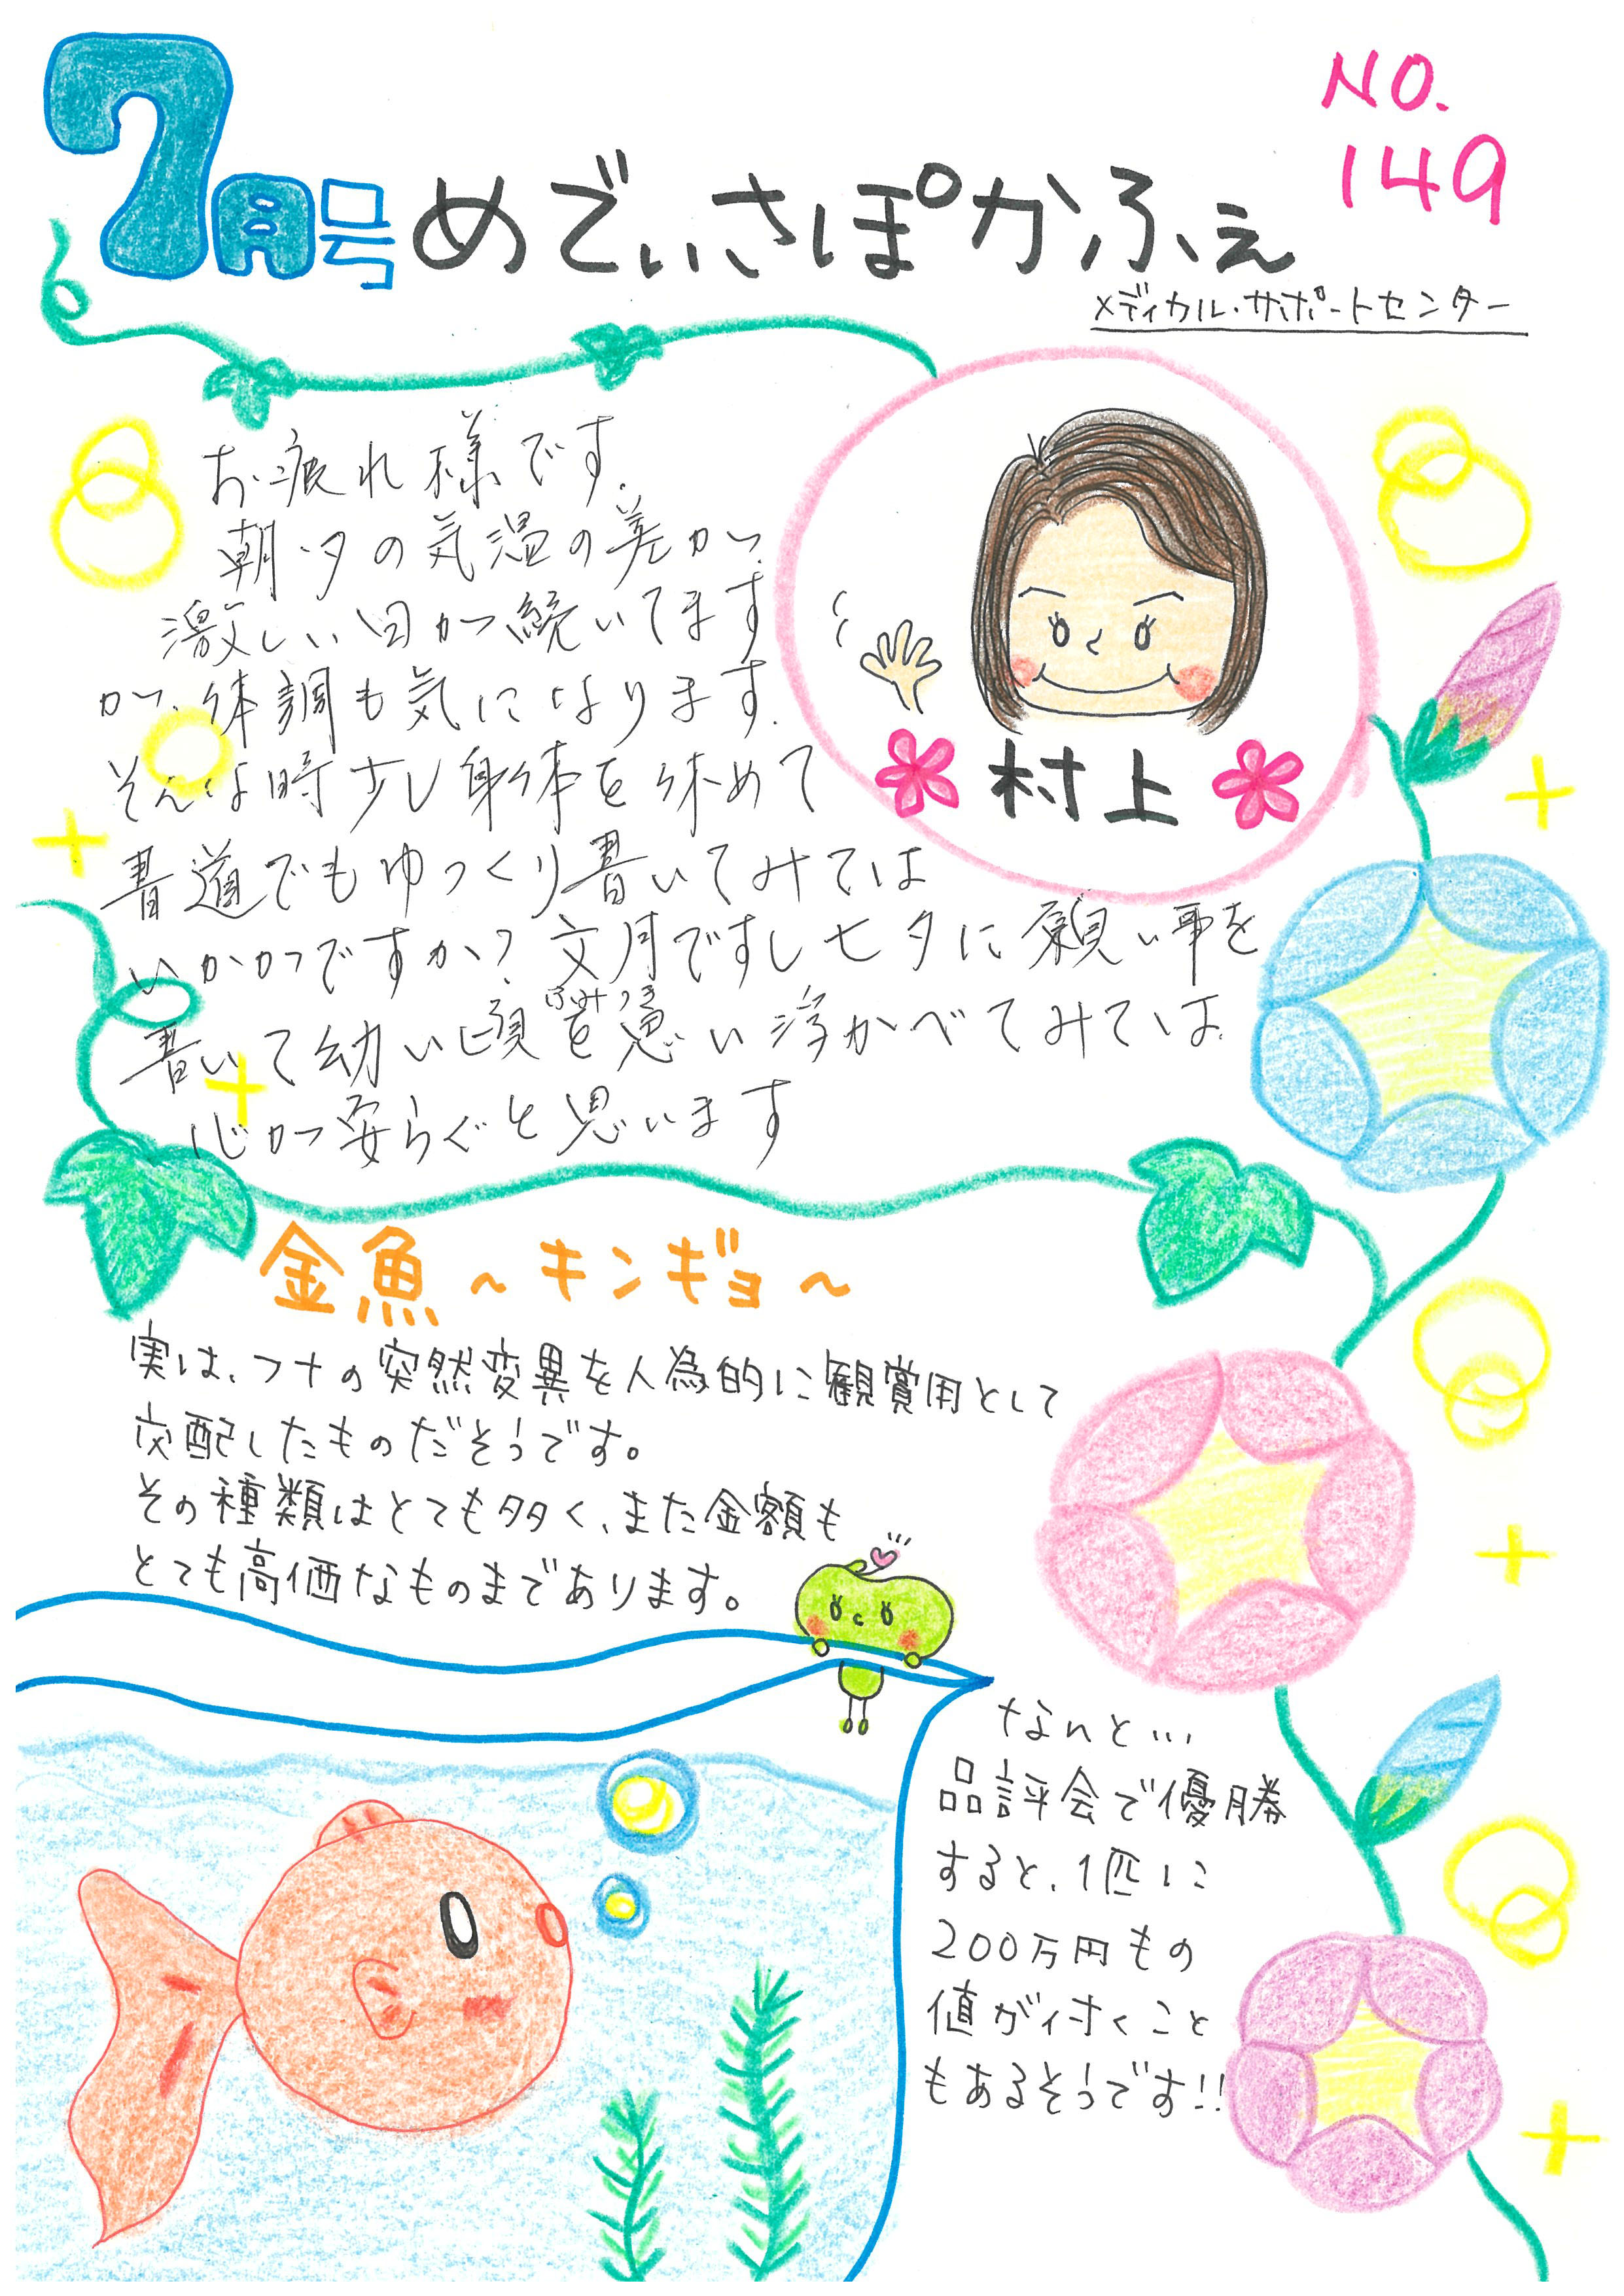 7月号 めでぃさぽかふぇ
NO.
149
メディカル・サポートセンター
お疲れ様です.
朝・夕の気温の差が
激しい日が続いてます
が、体調も気になります.
そんな時少し身体を休めて
書道でもゆっくり書いてみては
いかがですか？文月ですし七夕に願い事を
ふみつき
書いて幼い頃を思い浮かべてみては
心が安らぐと思います
村上
金魚～キンギョ～
実は、フナの突然変異を人為的に観賞用として
交配したものだそうです。
その種類はとても多く、また金額も
とても高価なものまであります。
なんと…
品評会で優勝
すると、1匹に
200万円もの
値が付くこと
もあるそうです!!